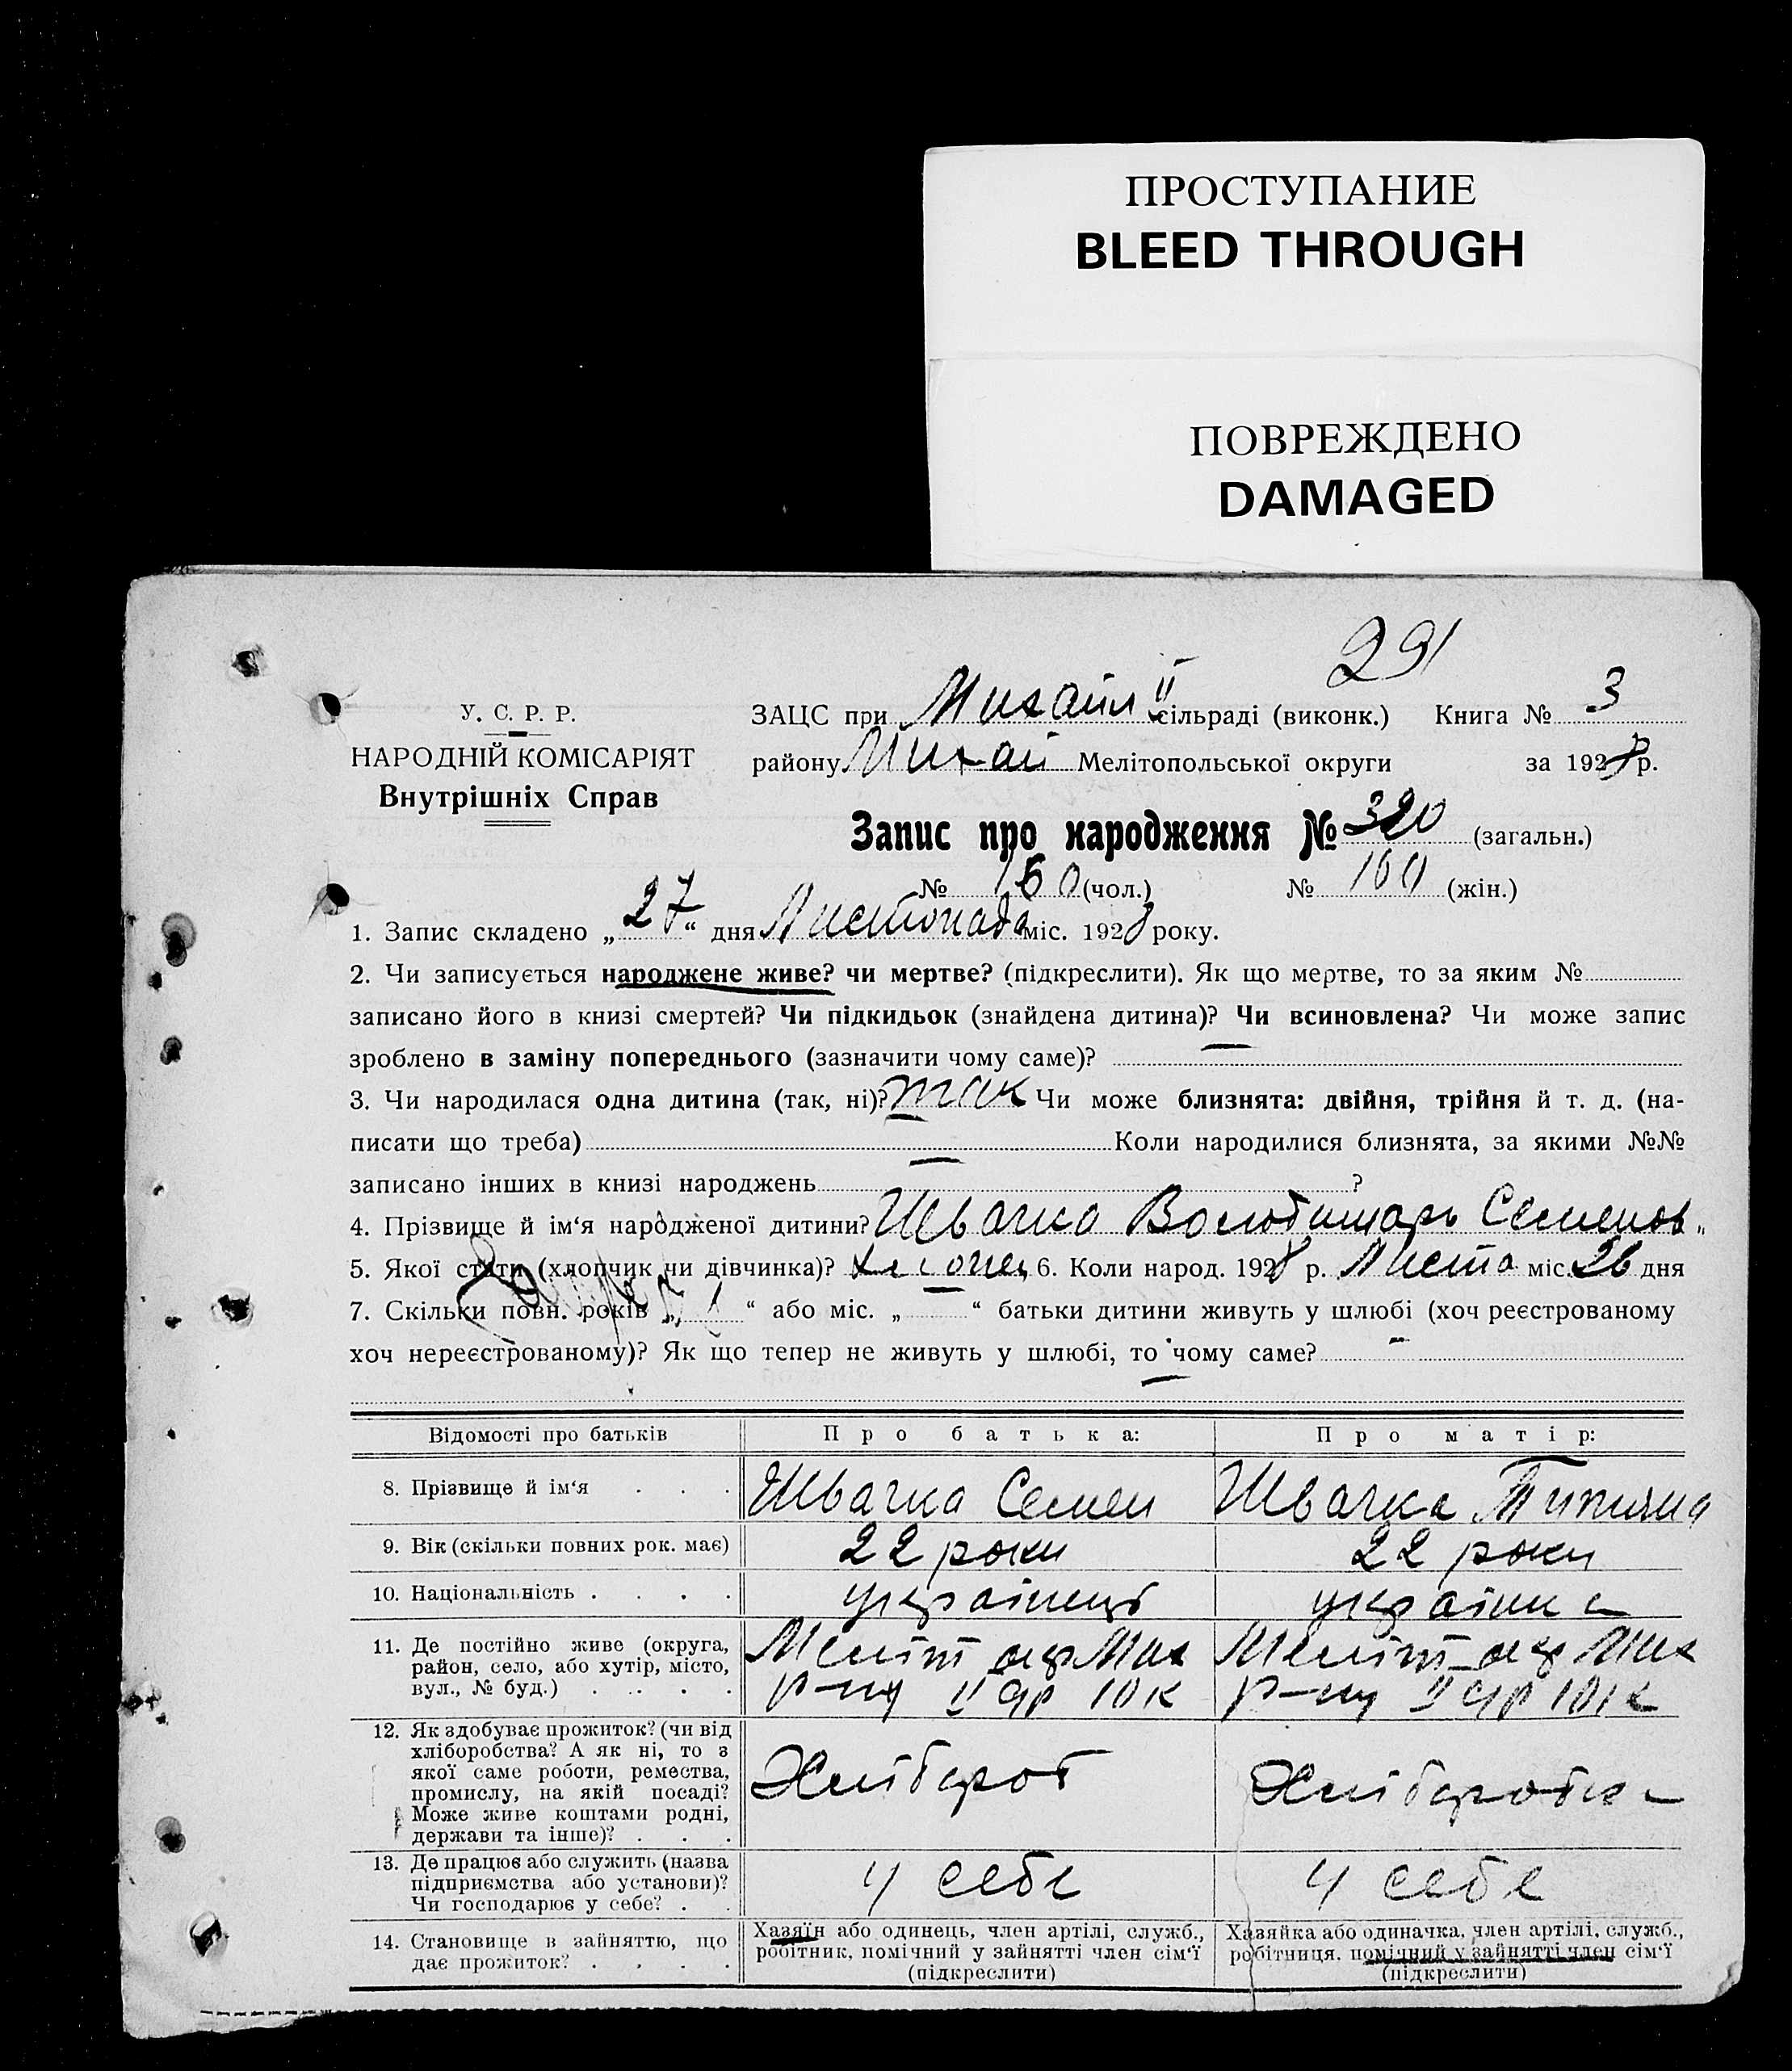 ПРОСТУПАНИЕ
BLEED THROUGH
ПОВРЕЖДЕНО
DAMAGED
291
У. С. Р. Р.
НАРОДНІЙ КОМІСАРІЯТ
Внутрішніх Справ
ЗАЦС при Михайл II сільраді (виконк.) Книга № 3
району Михай Мелітопольської округи за 1928 р.
Запис про народження № 320 (загальн.)
№ 160 (чол.) № 160 (жін.)
1. Запис складено „27“ дня Листопада міс. 1928 року.
2. Чи записується народжене живе? чи мертве? (підкреслити). Як що мертве, то за яким №
записано його в книзі смертей? Чи підкидьок (знайдена дитина)? Чи всиновлена? Чи може запис
зроблено в заміну попереднього (зазначити чому саме)?
3. Чи народилася одна дитина (так, ні)? так Чи може близнята: двійня, трійня й т. д. (на-
писати що треба) — Коли народилися близнята, за якими №№
записано інших в книзі народжень ?
4. Прізвище й ім‘я народженої дитини? Швачка Володимарь Семенов
5. Якої стати (хлопчик чи дівчинка)? хлопец 6. Коли народ. 1928 р. Листо міс. 26 дня
7. Скільки повн. років „ “ або міс. „ “ батьки дитини живуть у шлюбі (хоч реєстрованому
хоч нереєстрованому)? Як що тепер не живуть у шлюбі, то чому саме? —
Відомості про батьків Про батька: Про матір:
8. Прізвище й ім‘я . . . Швачка Семен Швачка Титяна
9. Вік (скільки повних рок. має) 22 роки 22 роки
10. Національність . . . . українець українка
11. Де постійно живе (округа, Меліт окр Мих Меліт окр Мих
район, село, або хутір, місто,
вул., № буд.) . . . . р-ну II р-ну II
12. Як здобуває прожиток? (чи від
хліборобства? А як ні, то з
якої саме роботи, ремества, Хлібороб Хліборобка
промислу, на якій посаді?
Може живе коштами родні,
держави та інше)? . . .
13. Де працює або служить (назва
підприємства або установи)? у себе у себе
Чи господарює у себе? . .
14. Становище в зайняттю, що Хазяїн або одинець, член артілі, служб., Хазяйка або одиначка, член артілі, служб.,
дає прожиток? . . . . робітник, помічний у зайнятті член сім‘ї робітниця, помічний у зайнятті член сім‘ї
(підкреслити) (підкреслити)